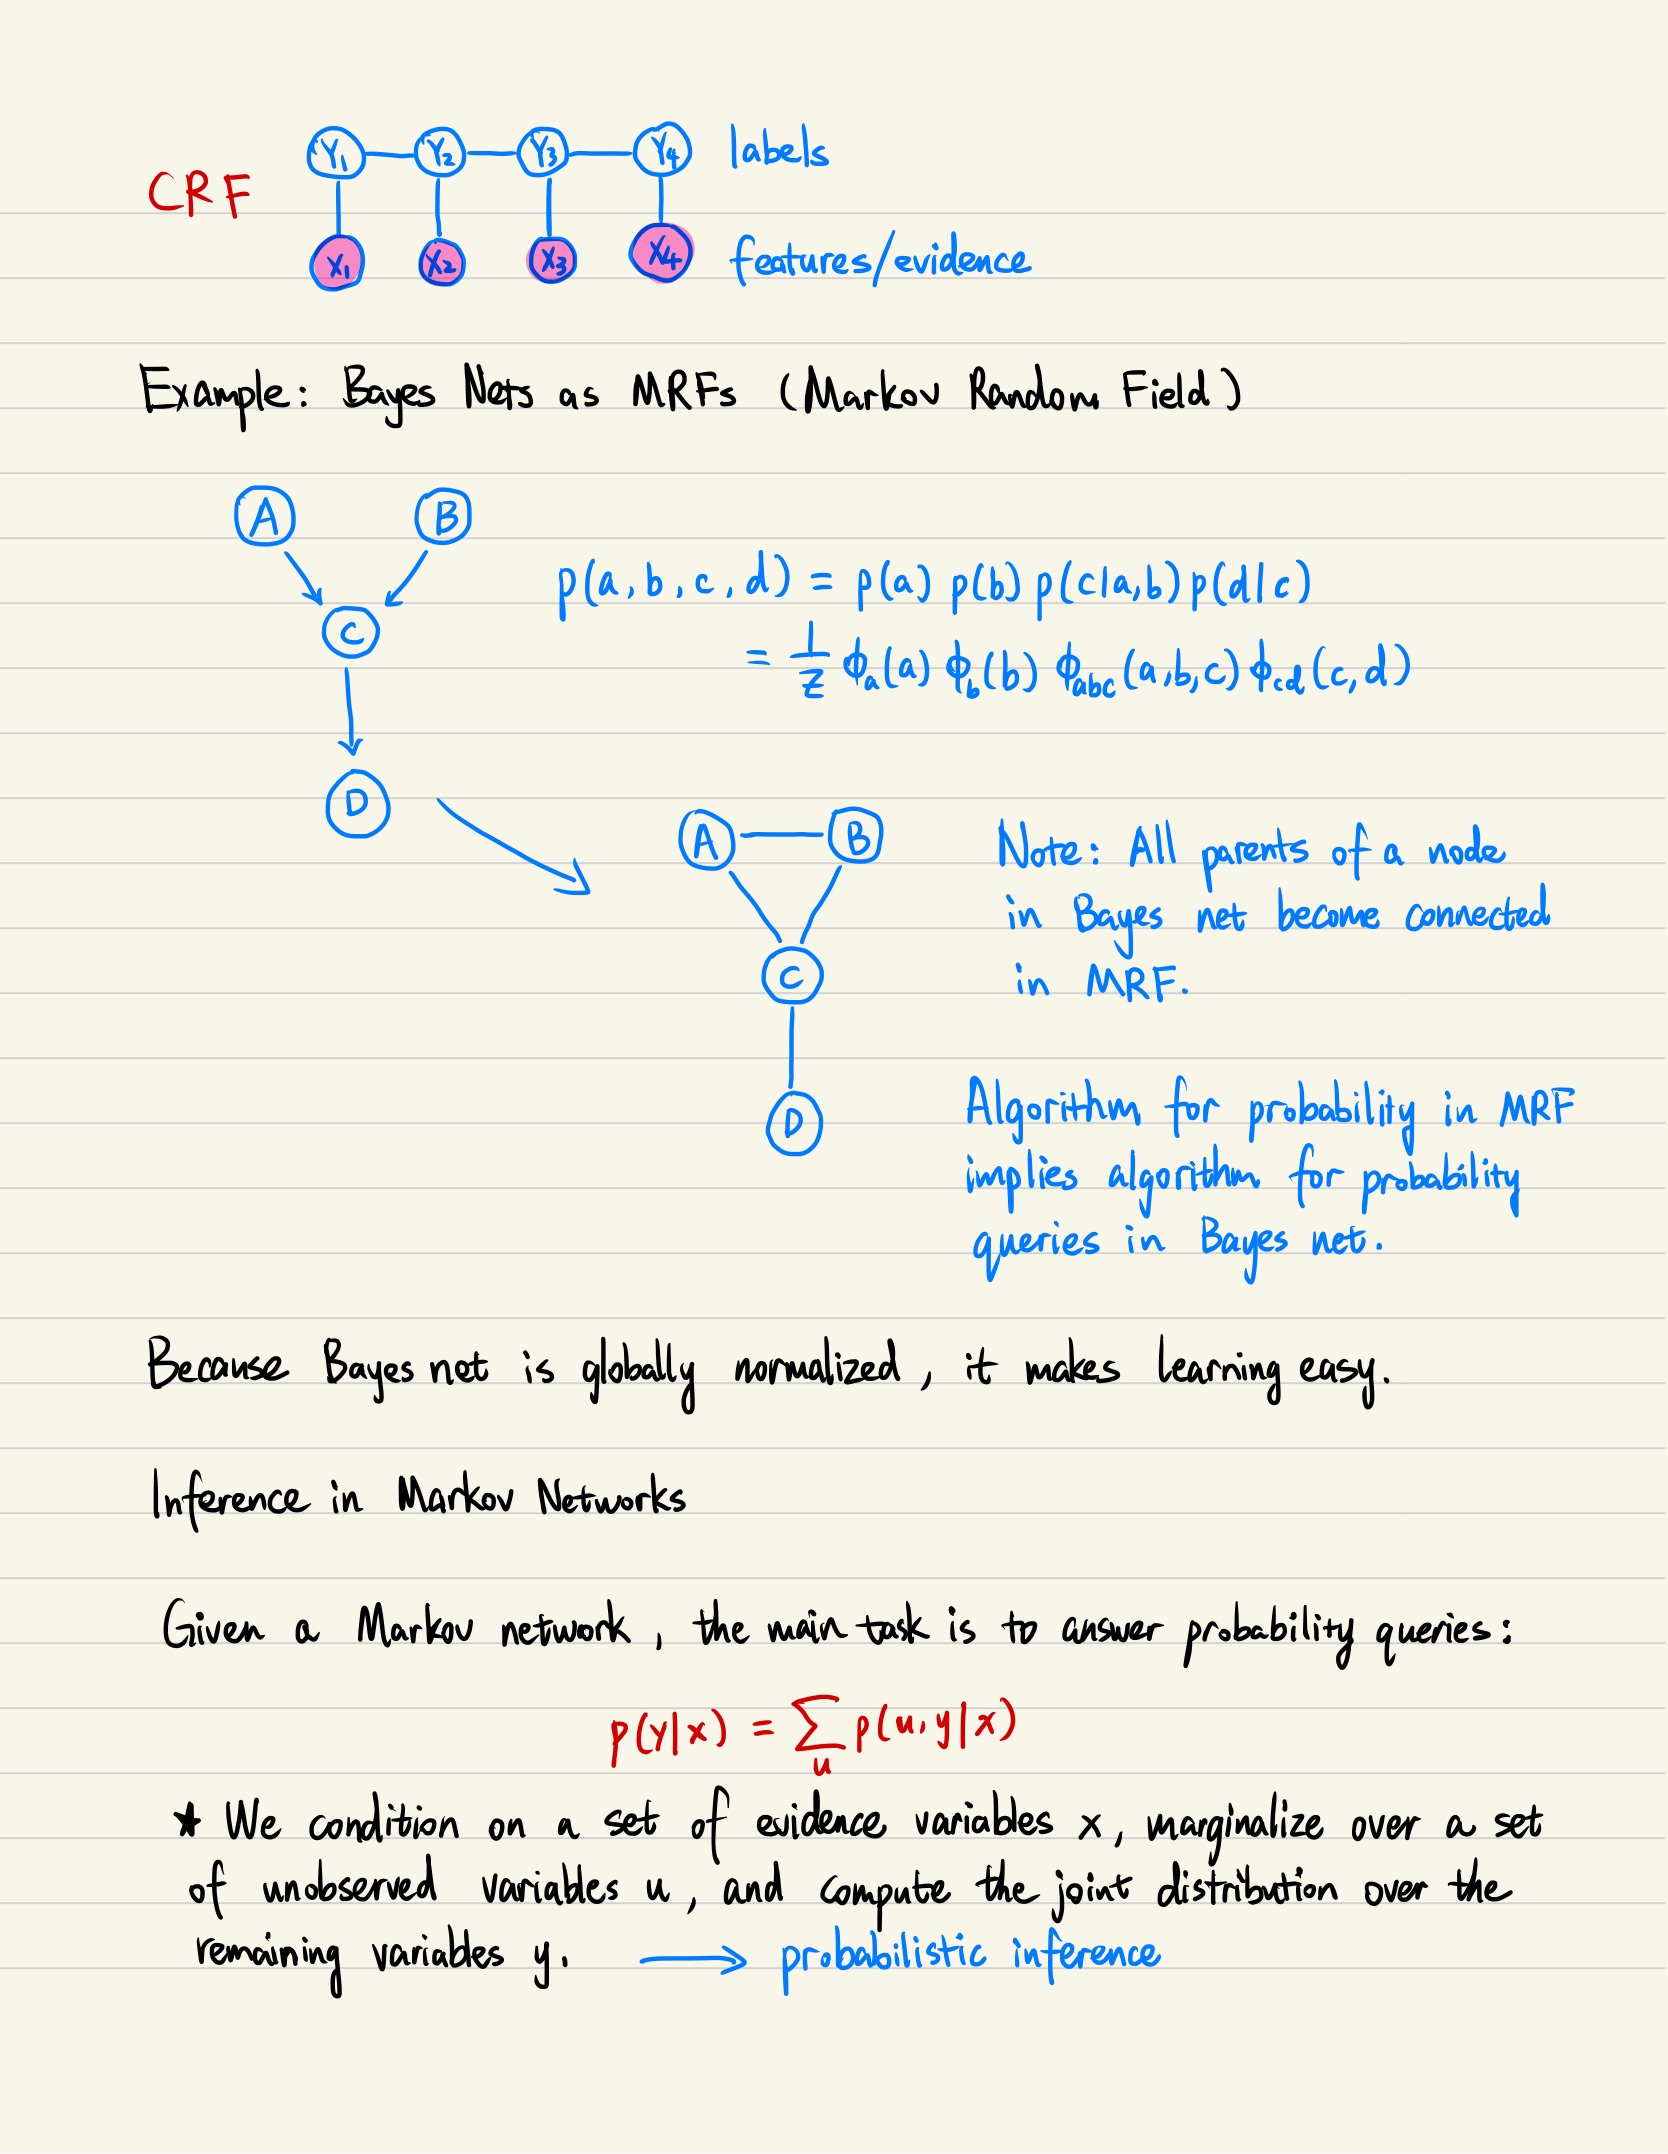 CRF
Y₁ Y₂ Y₃ Y₄ labels
X₁ X₂ X₃ X₄ features/evidence
Example: Bayes Nets as MRFs (Markov Random Field)
A B
C
D
p(a, b, c, d) = p(a) p(b) p(c|a,b) p(d|c)
= 1/Z ϕ_a(a) ϕ_b(b) ϕ_abc(a,b,c) ϕ_cd(c,d)
A B
C
D
Note: All parents of a node
in Bayes net become connected
in MRF.
Algorithm for probability in MRF
implies algorithm for probability
queries in Bayes net.
Because Bayes net is globally normalized, it makes learning easy.
Inference in Markov Networks
Given a Markov network, the main task is to answer probability queries:
p(y|x) = ∑_u p(u,y|x)
★ We condition on a set of evidence variables x, marginalize over a set
of unobserved variables u, and compute the joint distribution over the
remaining variables y. → probabilistic inference